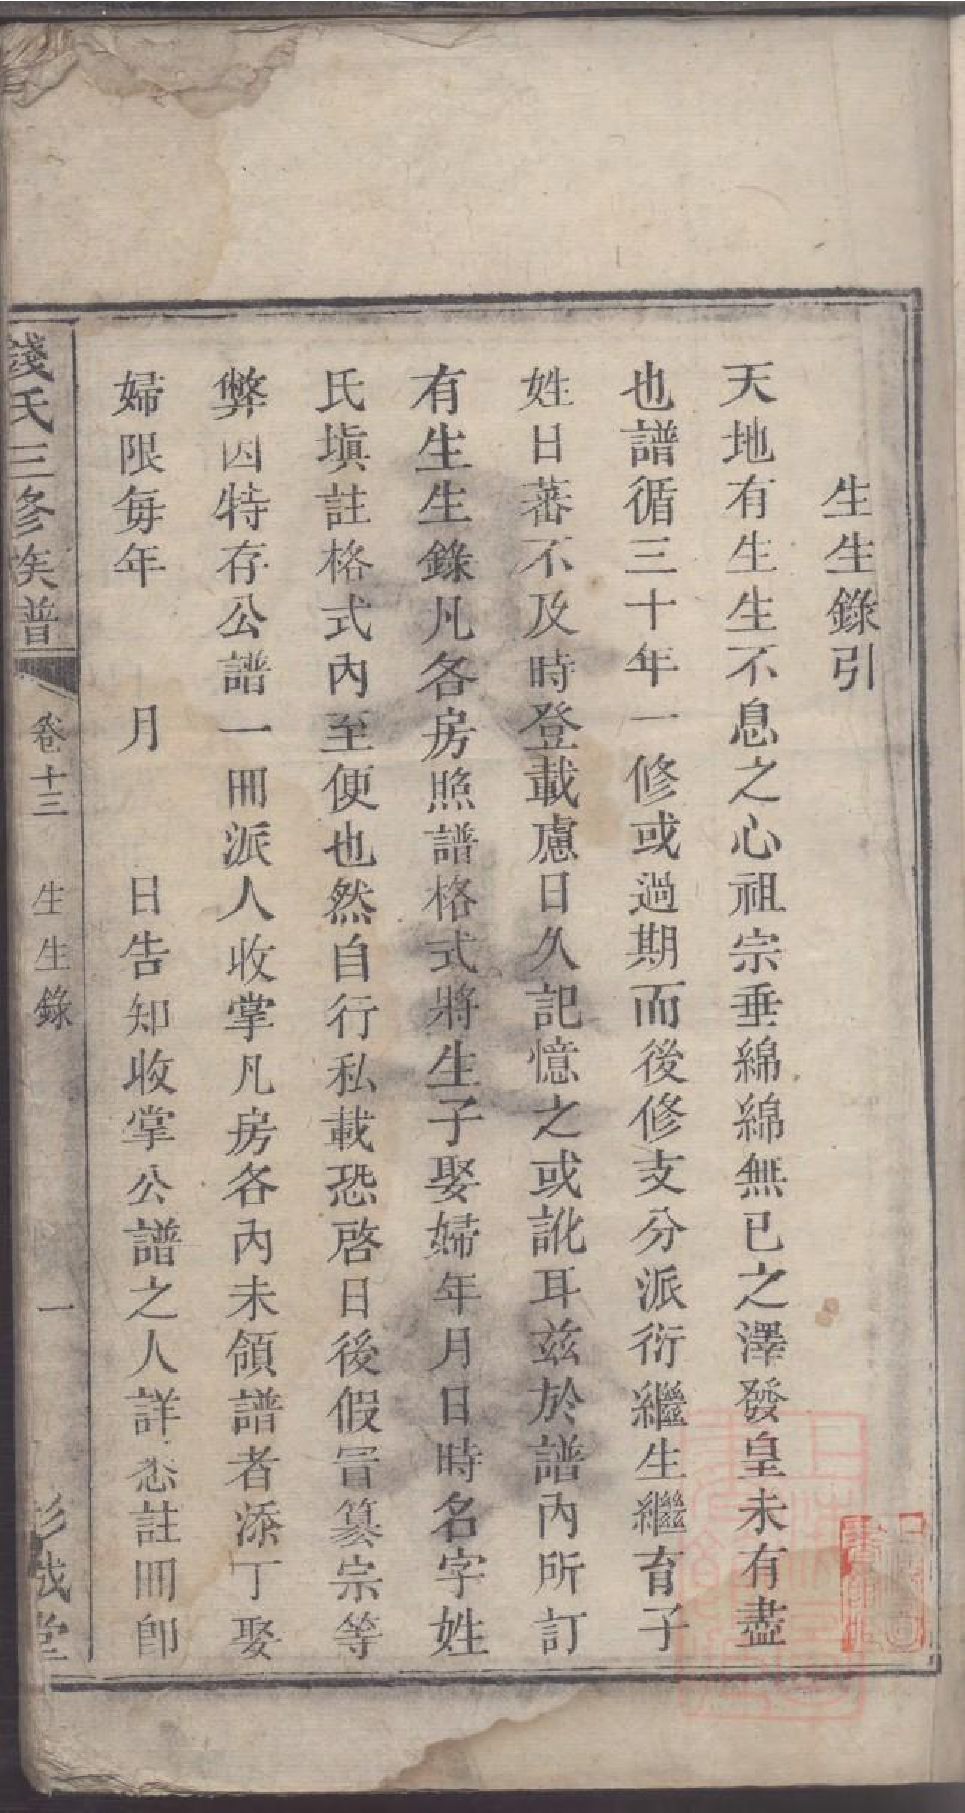 生生錄引
天地有生生生不息之心祖宗垂綿綿無已之澤發皇未有盡
也譜循三十年一修或過期而後修支分派衍繼生繼育子
姓日蕃不及時登載慮日久記憶之或訛耳茲於譜內所訂
有生生錄凡各房照譜格式將生子娶婦年月日時名字姓
氏塡註格式內至便也然自行私載恐啓日後假冒纂宗等
弊因特存公譜一冊派人收掌凡房各內未領譜者添丁娶
婦限每年 月 日告知收掌公譜之人詳悉註冊卽
錢氏三修族譜 卷十三 生生錄 一 彭城堂